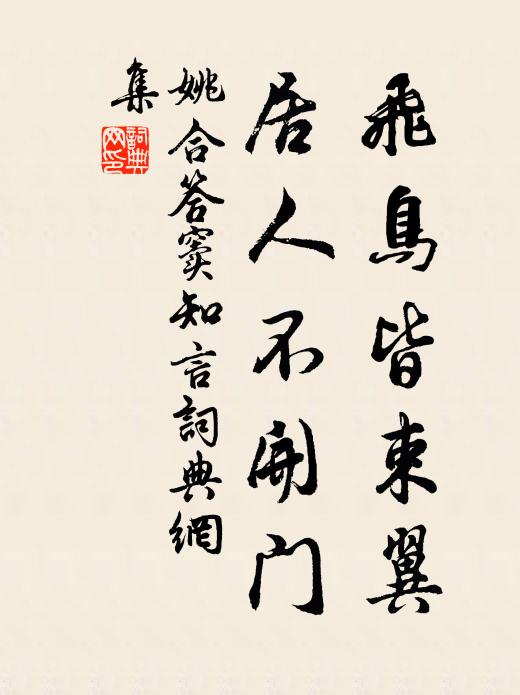 飛鳥皆束翼
居人不開門
姚合答竇知言詞典網
集
詞典
网印